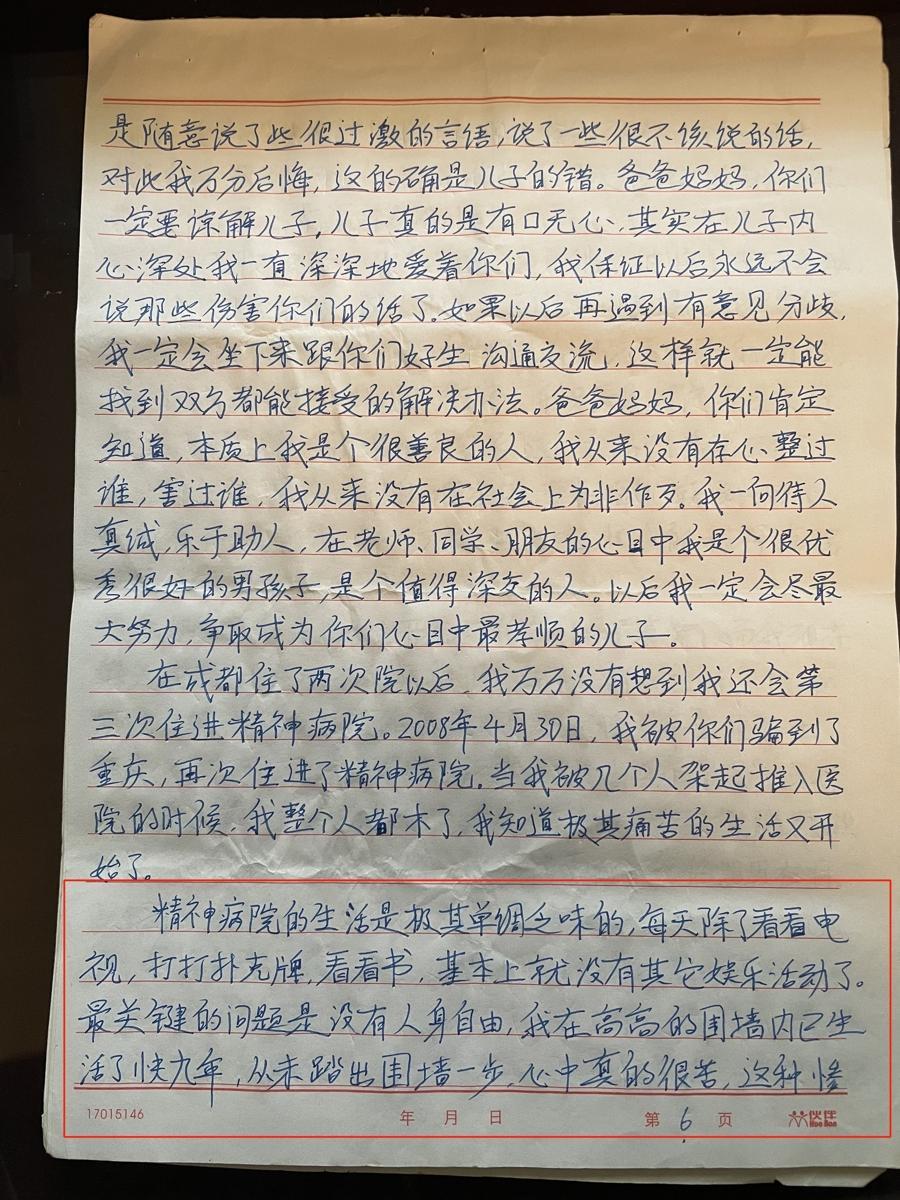 是随意说了些很过激的言语,说了一些很不该说的话,
对此我万分后悔,这的确是儿子的错。爸爸妈妈,你们
一定要谅解儿子,儿子真的是有口无心,其实在儿子内
心深处我一有深深地爱着你们,我保证以后永远不会
说那些伤害你们的话了。如果以后再遇到有意见分歧,
我一定会坐下来跟你们好生沟通交流,这样就一定能
找到双方都能接受的解决办法。爸爸妈妈,你们肯定
知道,本质上我是个很善良的人,我从来没有存心整过
谁,害过谁,我从来没有在社会上为非作歹。我一向待人
真诚,乐于助人,在老师、同学、朋友的心目中我是个很优
秀很好的男孩子,是个值得深交的人。以后我一定会尽最
大努力,争取成为你们心目中最孝顺的儿子。
在成都住了两次院以后,我万万没有想到我还会第
三次住进精神病院。2008年4月30日,我被你们骗到了
重庆,再次住进了精神病院。当我被几个人架起推入医
院的时候,我整个人都木了,我知道极其痛苦的生活又开
始了。
精神病院的生活是极其单调乏味的,每天除了看看电
视,打打扑克牌,看看书,基本上就没有其它娱乐活动了。
最关键的问题是没有人身自由,我在高高的围墙内已生
活了快九年,从未踏出围墙一步,心中真的很苦,这种惨
17015146 年 月 日 第 6 页 伙伴